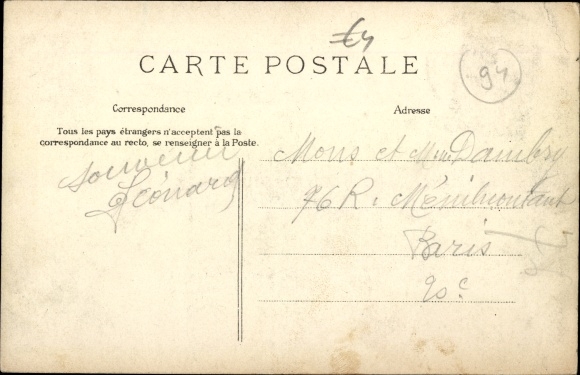 €4
94
CARTE POSTALE
Correspondance
Adresse
Tous les pays étrangers n'acceptent pas la
correspondance au recto, se renseigner à la Poste.
Souvenir
Léonard
Mons et Mme Dambry
76 R. Ménilmontant
Paris
20e